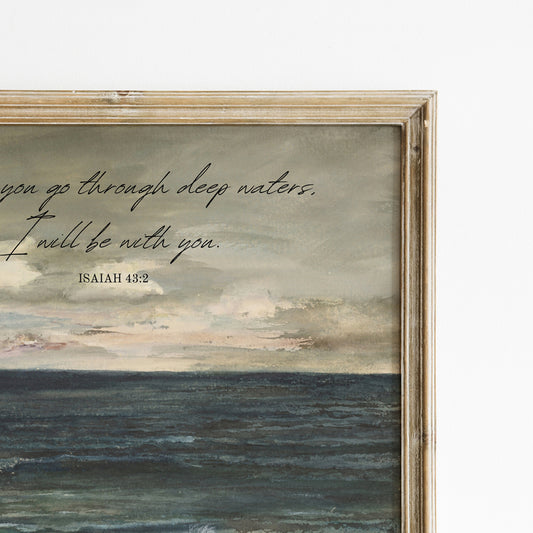 you go through deep waters,
I will be with you.
ISAIAH 43:2